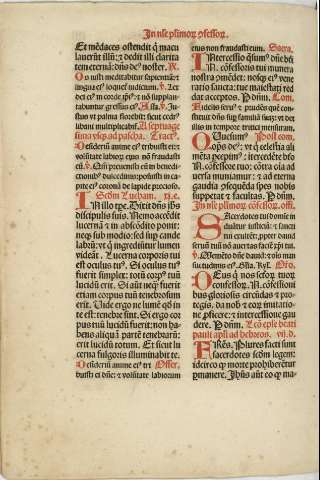 In nr̄e pl̄imor̄ ↄfessor̄.
Et mēdaces ostendit q̄ macu
lauerūt illū: ⁊ dedit illi clarita
tem eternā: dn̄s deꝰ noster. R̄.
Os iusti meditabitur sapientiā: ⁊
lingua eiꝰ loquet̉ iudicium. V̄. Lex
dei eiꝰ in corde ip̄iꝰ: ⁊ nō supplan
tabuntur gressus eiꝰ. Alla. V̄. Ju-
stus vt palma florebit: sicut cedrꝰ
libani multiplicabit̉. A septuage
sima vsq̄ ad pascha. Tractꝰ.
Desideriū anime eiꝰ tribuisti ei:
⁊ volūtate labiorꝝ eius nō fraudasti
eū. V̄. Qm̄ preuenisti eū in benedi-
ctionibꝰ dulcedinis: posuisti in ca-
pite eiꝰ coronā de lapide precioso.
Scd̄m Lucham. xi.c.
In illo tp̄e. Dixit dn̄s ih̄s
discipulis suis. Nemo accēdit
lucernā ⁊ in abscōdito ponit:
neqꝫ sub modio: sed sup̄ cande
labrū: vt q̄ ingrediūtur lumen
videāt. Lucerna corporis tui
est oculus tuꝰ. Si oculus tuꝰ
fuerit simplex: totū corpꝰ tuū
lucidū erit. Si aūt neq̄ fuerit
etiam corpus tuū tenebrosum
erit. Vide ergo ne lumē qd̄ in
te est: tenebre sint. Si ergo cor
pus tuū lucidū fuerit: non ha-
bens aliquā partē tenebrarū:
erit lucidū totum. Et sicut lu
cerna fulgoris illuminabit te.
Desideriū anime eiꝰ Offer.
tribuisti ei dn̄e: ⁊ volūtate labiorum
eius non fraudasti eum. Secra.
Intercessio q̄sum̄ dn̄e bti
N. cōfessoris tui munera
nostra ↄmēdet: nosqꝫ eiꝰ vene
ratio sancta: tue maiestati red
dat acceptos. P dn̄m. Com.
Fidelis seruꝰ ⁊ prudēs quē con-
stituit dn̄s sup̄ familiā suā: vt det
illis in tempore tritici mensuram.
Quesumꝰ Postcom.
oīps deꝰ: vt q̄ celestia ali
mēta percepimꝰ: intercedēte bt̄o
N. cōfessore tuo: cōtra oīa ad
uersa muniamur: ⁊ ad eterna
gaudia ꝓsequēda spes nobis
suppetat ⁊ facultas. P dn̄m.
In nr̄e pl̄imor̄ cōfessor̄. offi.
Sacerdotes tui domie in
duātur iusticiā: ⁊ sancti
tui exultet: ppter dauid
seruū tuū nō auertas faciē xpi tui.
V̄. Memēto dn̄e dauid: ⁊ oīs man
suetudinis eiꝰ. Alla. Kyl. Oro.
Deus q̄ nos sctor̄ tuor̄
confessor̄ N. cōfessioni
bus gloriosis circūdas ⁊ pro-
tegis. da nob̄ ⁊ eor̄ imitatio-
ne ꝓficere: ⁊ intercessione gau
dere. P dn̄m. Lcō epl̄e beati
pauli apl̄i ad hebreos. vij.d.
Frēs. Plures facti sunt
sacerdotes scd̄m legem:
idcirco q̄ morte prohiberētur
ꝑmanere. Jhūs aūt eo q̄ ma-